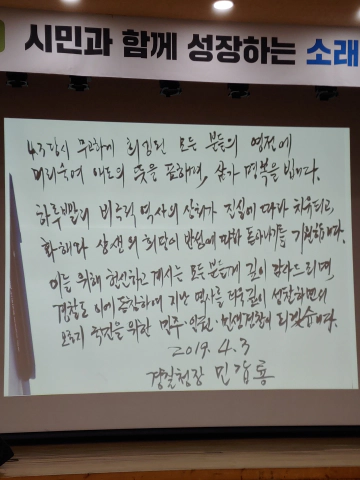 시민과 함께 성장하는 소래
4.3 당시 무고하게 희생된 모든 분들의 영전에
머리숙여 애도의 뜻을 표하며, 삼가 명복을 빕니다.
하루빨리 비극적 역사의 상처가 진실에 따라 치유되고,
화해와 상생의 희망이 반영에 더하 돋아나기를 기원합니다.
이를 위해 헌신하고 계시는 모든 분들께 깊이 감사드리며
경찰도 이에 동참하여 지난 역사를 더욱 깊이 성찰하면서
오로지 국민을 위한 민주·인권·민생경찰이 되겠습니다.
2019. 4. 3
경찰청장 민갑룡